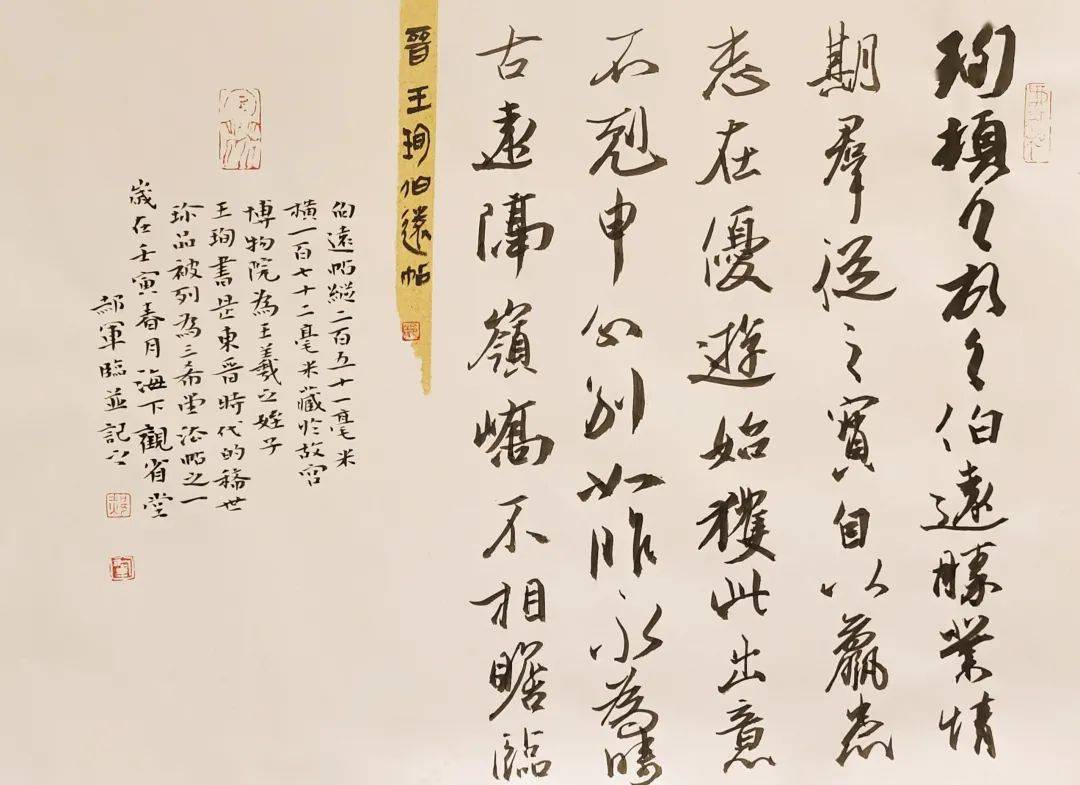 珣頓首頓首伯遠勝業情
期羣從之寶自以羸患
志在優遊始獲此出意
不剋申分別如昨永為疇
古遠隔嶺嶠不相瞻臨
晉王珣伯遠帖
伯遠帖縱二百五十一毫米
橫一百七十二毫米藏於故宮
博物院為王羲之姪子
王珣書是東晉時代的稀世
珍品被列為三希堂法帖之一
歲在壬寅春月海下觀省堂
郝軍臨並記之